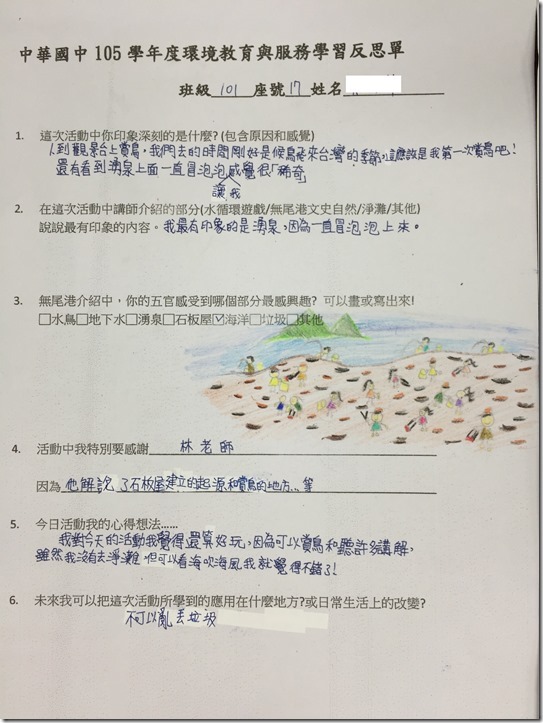 中華國中 105 學年度環境教育與服務學習反思單
班級 101 座號 17 姓名
1. 這次活動中你印象深刻的是什麼? (包含原因和感覺)
1.到觀景台上賞鳥,我們去的時間剛好是候鳥飛來台灣的季節,這應該是我第一次賞鳥吧!
還有看到湧泉上面一直冒泡泡感覺很「稀奇」
讓我
2. 在這次活動中講師介紹的部分(水循環遊戲/無尾港文史自然/淨灘/其他)
說說最有印象的內容。我最有印象的是湧泉,因為一直冒泡泡上來。
3. 無尾港介紹中,你的五官感受到哪個部分最感興趣? 可以畫或寫出來!
□水鳥□地下水□湧泉□石板屋☑海洋□垃圾□其他
4. 活動中我特別要感謝 林老師
因為 他解說了石板屋建立的起源和賞鳥的地方...等
5. 今日活動我的心得想法......
我對今天的活動我覺得還算好玩,因為可以賞鳥和聽許多講解,
雖然我沒有去淨灘,但可以看海吹海風我就覺得不錯了!
6. 未來我可以把這次活動所學到的應用在什麼地方?或日常生活上的改變?
不可以亂丟垃圾